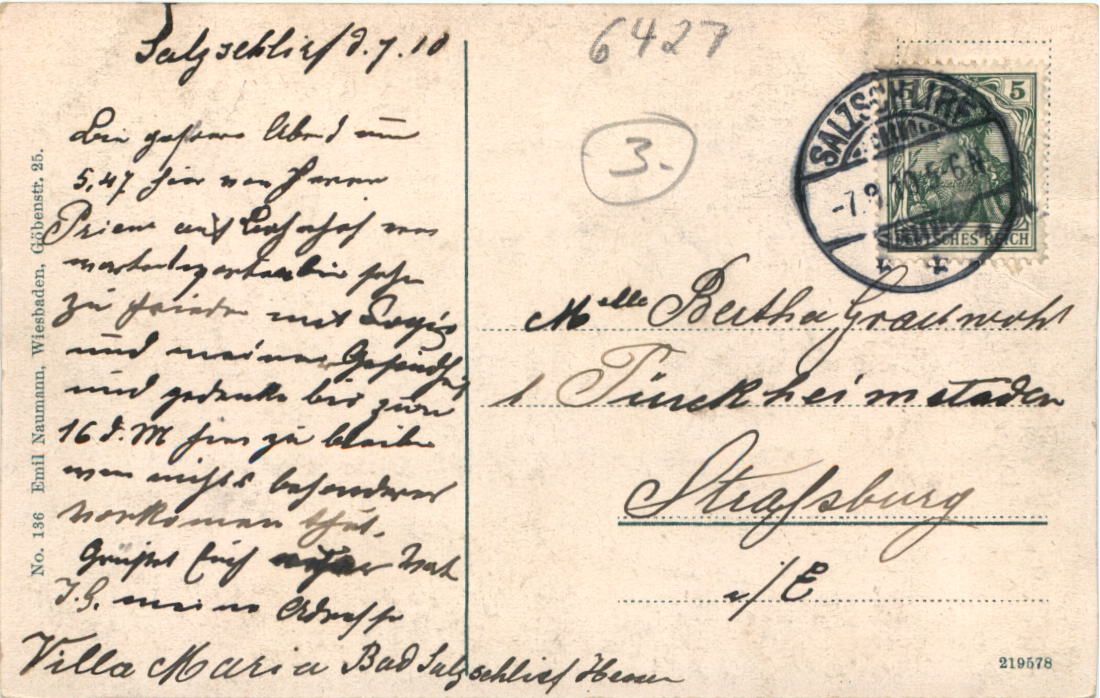 Salzschlirf d. 7. 10
6427
3.
Bin gestern Abend um
5,47 hier von Herrn
Priem auf Bahnhof
zu frieden mit Logis
und meiner Gesundheit
und gedenke bis zum
16 d. M hier zu bleiben
wen nichts besonderes
vorkomen thut.
Grüsst Euch
J. G. meine Adresse
Villa Maria Bad Salzschlirf Hessen
No. 136 Emil Naumann, Wiesbaden, Göbenstr. 25.
SALZSCHLIRF
-7.9.10.5-6N
5
DEUTSCHES REICH
Melle Bertha Grauwohl
1 Türckheimstaden
Strassburg
i/E
219578